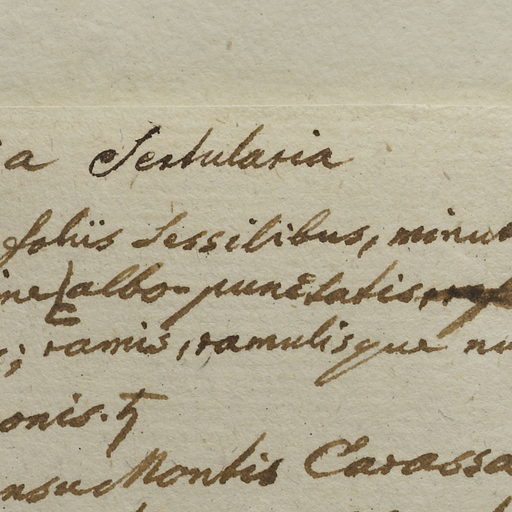 a Sertularia
foliis sessilibus, minut
ine albo punctatis,
; ramis, ramulisque nu
onis. ♄
nsu Montis Carassa